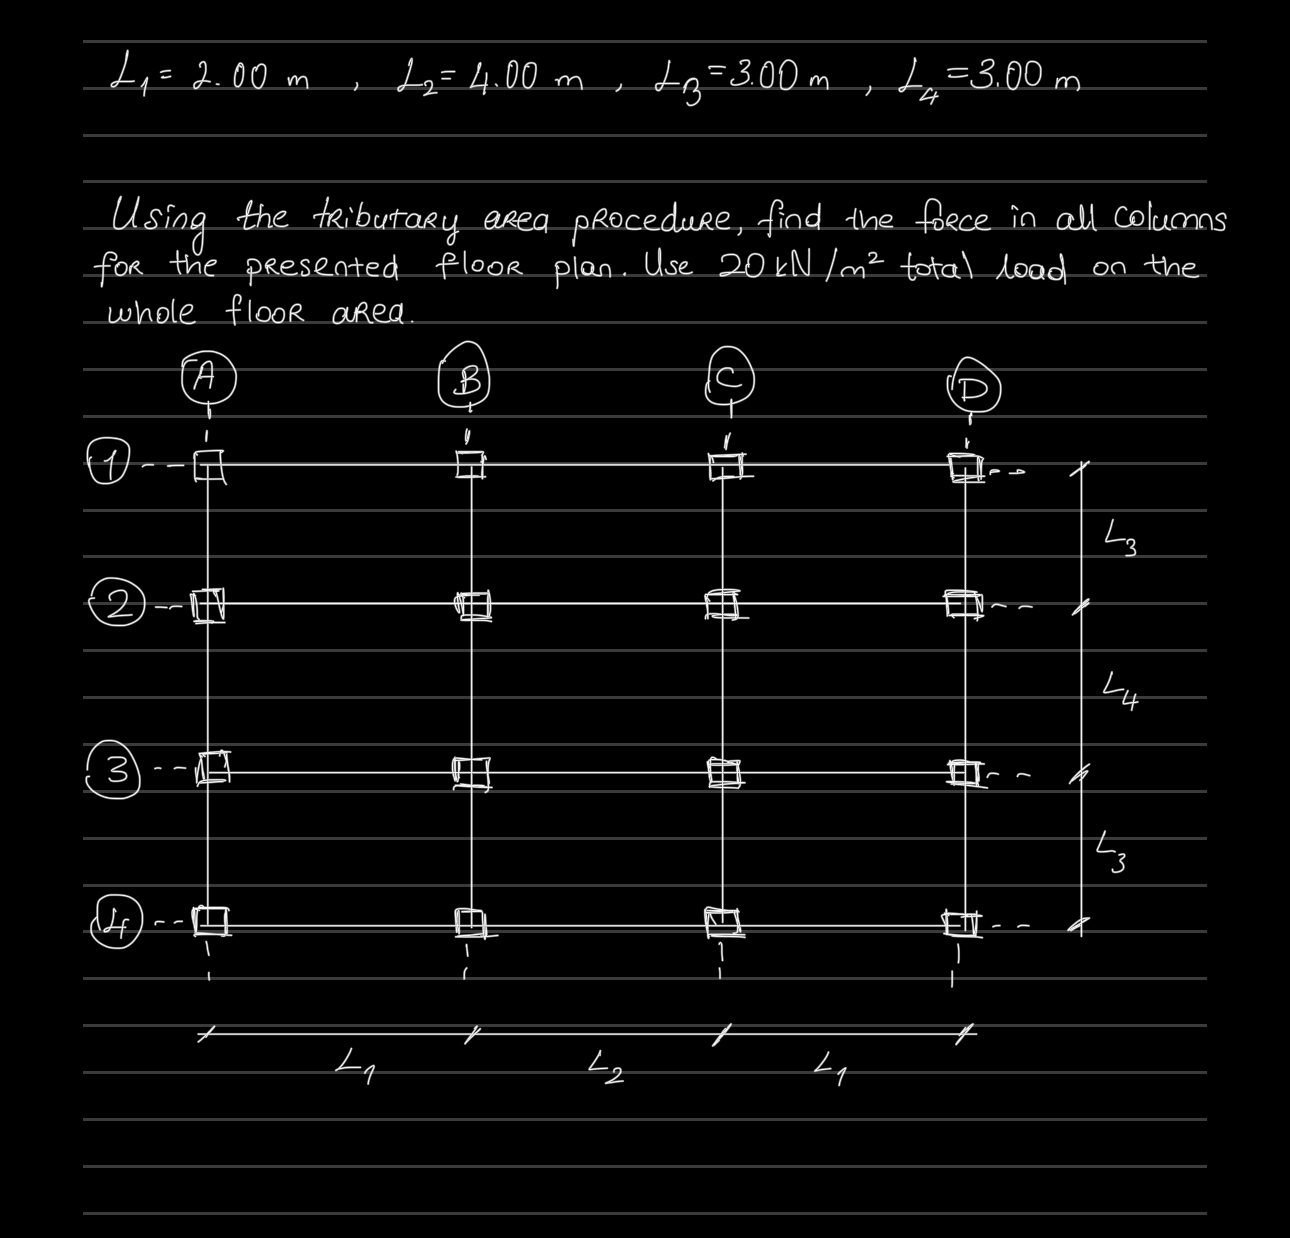 L₁ = 2.00 m , L₂ = 4.00 m , L₃ = 3.00 m , L₄ = 3.00 m
Using the tributary area procedure, find the force in all columns
for the presented floor plan. Use 20 kN/m² total load on the
whole floor area.
A B C D
1
L₃
2
L₄
3
L₃
4
L₁ L₂ L₁